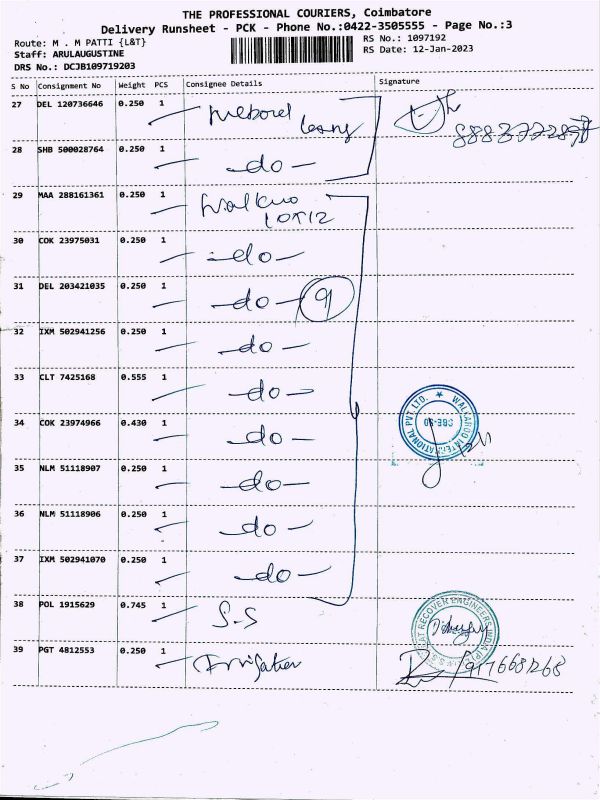 THE PROFESSIONAL COURIERS, Coimbatore
Delivery Runsheet - PCK - Phone No.:0422-3505555 - Page No.:3
Route: M . M PATTI {L&T}
RS No.: 1097192
Staff: ARULAUGUSTINE
RS Date: 12-Jan-2023
DRS No.: DCJB109719203
S No Consignment No Weight PCS Consignee Details Signature
27 DEL 120736646 0.250 1
28 SHB 500028764 0.250 1 -do-
29 MAA 288161361 0.250 1
30 COK 23975031 0.250 1 -do-
31 DEL 203421035 0.250 1 -do- 9
32 IXM 502941256 0.250 1 -do-
33 CLT 7425168 0.555 1 -do-
34 COK 23974966 0.430 1 -do-
WALLAROO INTERNATIONAL PVT. LTD.
35 NLM 51118907 0.250 1 -do-
36 NLM 51118906 0.250 1 -do-
37 IXM 502941070 0.250 1 -do-
38 POL 1915629 0.745 1 S.S
39 PGT 4812553 0.250 1 Irrigation